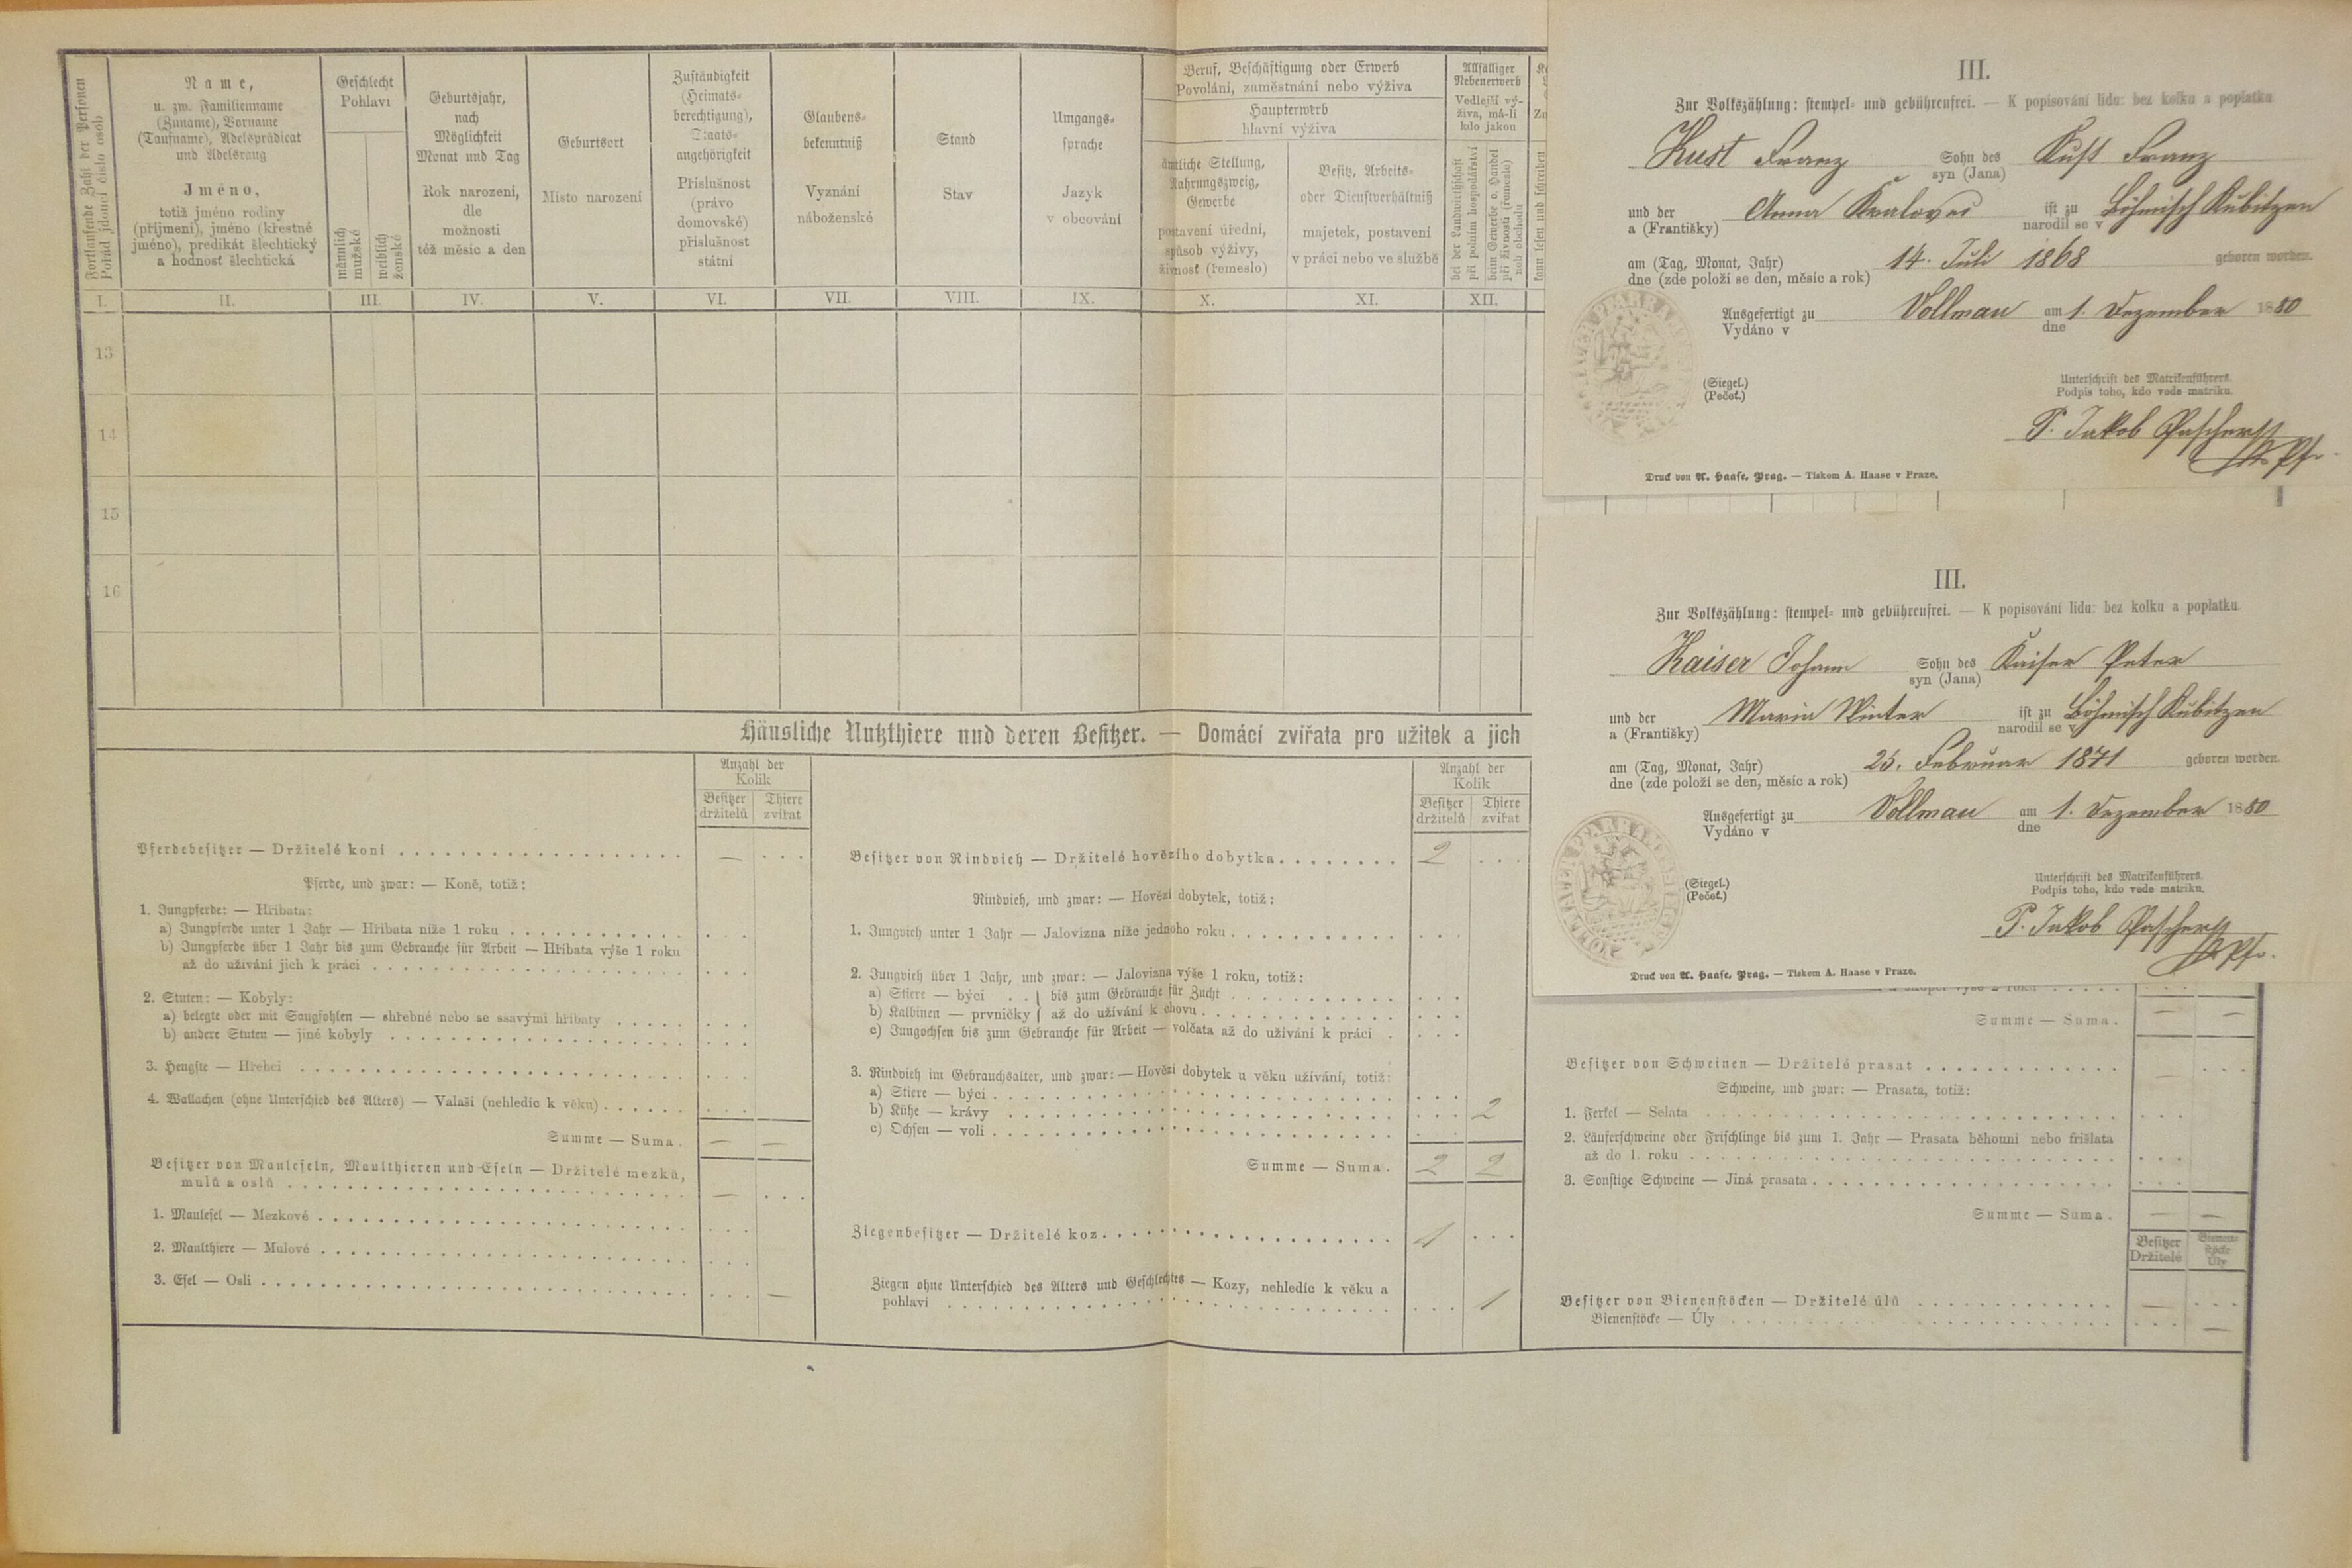 Fortlaufende Zahl der Personen
Pořád jdoucí číslo osob
Name,
u. zw. Familienname
(Zuname), Vorname
(Taufname), Adelsprädicat
und Adelsrang
Jméno,
totiž jméno rodiny
(příjmení), jméno (křestné
jméno), predikát šlechtický
a hodnosť šlechtická
Geschlecht
Pohlaví
männlich
mužské
weiblich
ženské
Geburtsjahr,
nach
Möglichkeit
Monat und Tag
Rok narození,
dle
možnosti
též měsíc a den
Geburtsort
Místo narození
Zuständigkeit
(Heimats-
berechtigung),
Staats-
angehörigkeit
Příslušnost
(právo
domovské)
příslušnost
státní
Glaubens-
bekenntniß
Vyznání
náboženské
Stand
Stav
Umgangs-
sprache
Jazyk
v obcování
Beruf, Beschäftigung oder Erwerb
Povolání, zaměstnání nebo výživa
Haupterwerb
hlavní výživa
ämtliche Stellung,
Nahrungszweig,
Gewerbe
postavení úřední,
způsob výživy,
živnost (řemeslo)
Besitz, Arbeits-
oder Dienstverhältniß
majetek, postavení
v práci nebo ve službě
Allfälliger
Nebenerwerb
Vedlejší vý-
živa, má-li
kdo jakou
bei der Landwirthschaft
při polním hospodářství
beim Gewerbe o. Handel
při živnosti (řemesle)
neb obchodu
kann lesen und schreiben
I. II. III. IV. V. VI. VII. VIII. IX. X. XI. XII.
13
14
15
16
Häusliche Nutzthiere und deren Besitzer. — Domácí zvířata pro užitek a jich
Anzahl der
Kolik
Besitzer
držitelů
Thiere
zvířat
Pferdebesitzer — Držitelé koní —
Pferde, und zwar: — Koně, totiž:
1. Jungpferde: — Hříbata:
a) Jungpferde unter 1 Jahr — Hříbata níže 1 roku
b) Jungpferde über 1 Jahr bis zum Gebrauche für Arbeit — Hříbata výše 1 roku
až do užívání jich k práci
2. Stuten: — Kobyly:
a) belegte oder mit Saugfohlen — shřebné nebo se ssavými hříbaty
b) andere Stuten — jiné kobyly
3. Hengste — Hřebci
4. Wallachen (ohne Unterschied des Alters) — Valaši (nehledíc k věku)
Summe — Suma. — —
Besitzer von Mauleseln, Maulthieren und Eseln — Držitelé mezků,
mulů a oslů —
1. Maulesel — Mezkové
2. Maulthiere — Mulové
3. Esel — Osli —
Anzahl der
Kolik
Besitzer
držitelů
Thiere
zvířat
Besitzer von Rindvieh — Držitelé hovězího dobytka 2
Rindvieh, und zwar: — Hovězí dobytek, totiž:
1. Jungvieh unter 1 Jahr — Jalovizna níže jednoho roku
2. Jungvieh über 1 Jahr, und zwar: — Jalovizna výše 1 roku, totiž:
a) Stiere — býci . . } bis zum Gebrauche für Zucht
b) Kalbinen — prvničky } až do užívání k chovu
c) Jungochsen bis zum Gebrauche für Arbeit — volčata až do užívání k práci
3. Rindvieh im Gebrauchsalter, und zwar: — Hovězí dobytek u věku užívání, totiž:
a) Stiere — býci
b) Kühe — krávy 2
c) Ochsen — voli
Summe — Suma. 2 2
Ziegenbesitzer — Držitelé koz 1
Ziegen ohne Unterschied des Alters und Geschlechtes — Kozy, nehledíc k věku a
pohlaví 1
Summe — Suma. — —
Besitzer von Schweinen — Držitelé prasat —
Schweine, und zwar: — Prasata, totiž:
1. Ferkel — Selata
2. Läuferschweine oder Frischlinge bis zum 1. Jahr — Prasata běhouni nebo frišlata
až do 1. roku
3. Sonstige Schweine — Jiná prasata
Summe — Suma. — —
Besitzer
Držitelé
Bienen-
stöcke
Úly
Besitzer von Bienenstöcken — Držitelé úlů —
Bienenstöcke — Úly —
III.
Zur Volkszählung: stempel- und gebührenfrei. — K popisování lidu: bez kolku a poplatku
Kust Franz Sohn des syn (Jana) Kust Franz
und der a (Františky) Anna ist zu narodil se v Böhmisch Kubitzen
am (Tag, Monat, Jahr) 14. Juli 1868 geboren worden.
dne (zde položí se den, měsíc a rok)
Ausgefertigt zu Vollmau am 1. Dezember 1880
Vydáno v dne
(Siegel.)
(Pečeť.)
Unterschrift des Matrikenführers.
Podpis toho, kdo vede matriku.
P. Jakob
Pfr.
Druck von A. Haase, Prag. — Tiskem A. Haase v Praze.
III.
Zur Volkszählung: stempel- und gebührenfrei. — K popisování lidu: bez kolku a poplatku.
Kaiser Johann Sohn des syn (Jana) Kaiser Peter
und der a (Františky) Maria Winter ist zu narodil se v Böhmisch Kubitzen
am (Tag, Monat, Jahr) 25. Februar 1871 geboren worden.
dne (zde položí se den, měsíc a rok)
Ausgefertigt zu Vollmau am 1. Dezember 1880
Vydáno v dne
(Siegel.)
(Pečeť.)
Unterschrift des Matrikenführers.
Podpis toho, kdo vede matriku.
P. Jakob
Pfr.
Druck von A. Haase, Prag. — Tiskem A. Haase v Praze.